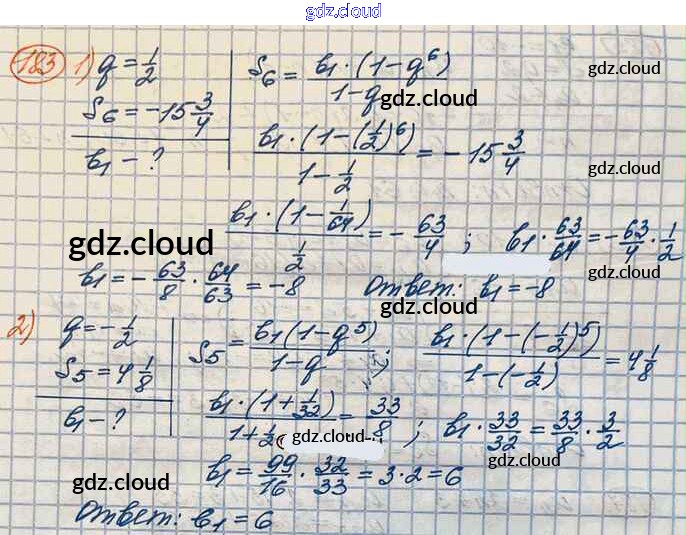 gdz.cloud
183 1) q = 1/2
S₆ = -15 3/4
b₁ - ?
S₆ = b₁·(1-q⁶)/(1-q)
gdz.cloud
gdz.cloud
b₁·(1-(1/2)⁶)/(1-1/2) = -15 3/4
gdz.cloud
b₁·(1-1/64)/(1/2) = -63/4; b₁·63/64 = -63/4·1/2
gdz.cloud
gdz.cloud
b₁ = -63/8·64/63 = -8
Ответ: b₁ = -8
gdz.cloud
2) q = -1/2
S₅ = 4 1/8
b₁ - ?
S₅ = b₁(1-q⁵)/(1-q); b₁·(1-(-1/2)⁵)/(1-(-1/2)) = 4 1/8
b₁·(1+1/32)/(1+1/2) = 33/8; b₁·33/32 = 33/8·3/2
gdz.cloud
gdz.cloud
b₁ = 99/16·32/33 = 3·2 = 6
gdz.cloud
gdz.cloud
Ответ: b₁ = 6
gdz.cloud